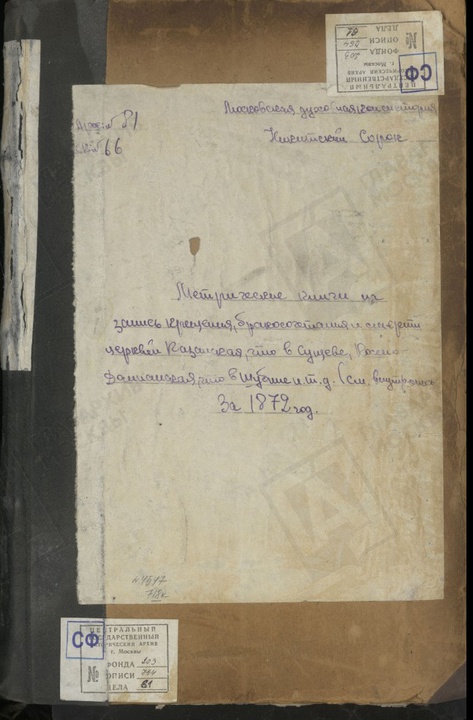 ЦЕНТРАЛЬНЫЙ
ГОСУДАРСТВЕННЫЙ
ИСТОРИЧЕСКИЙ АРХИВ
г. Москвы
СФ
№
ФОНДА 203
ОПИСИ
ДЕЛА 81
Московская духовная консистория
81
66
Никитский Сорок
Метрические книги на
запись крещения, бракосочетания и смерти
церквей Казанская, что в Сущеве, Космо-
Дамианская, что в Шубине и т.д. (см. внутри
За 1872 год.
ЦЕНТРАЛЬНЫЙ
ГОСУДАРСТВЕННЫЙ
ИСТОРИЧЕСКИЙ АРХИВ
г. Москвы
СФ
№
ФОНДА 203
ОПИСИ 764
ДЕЛА 81